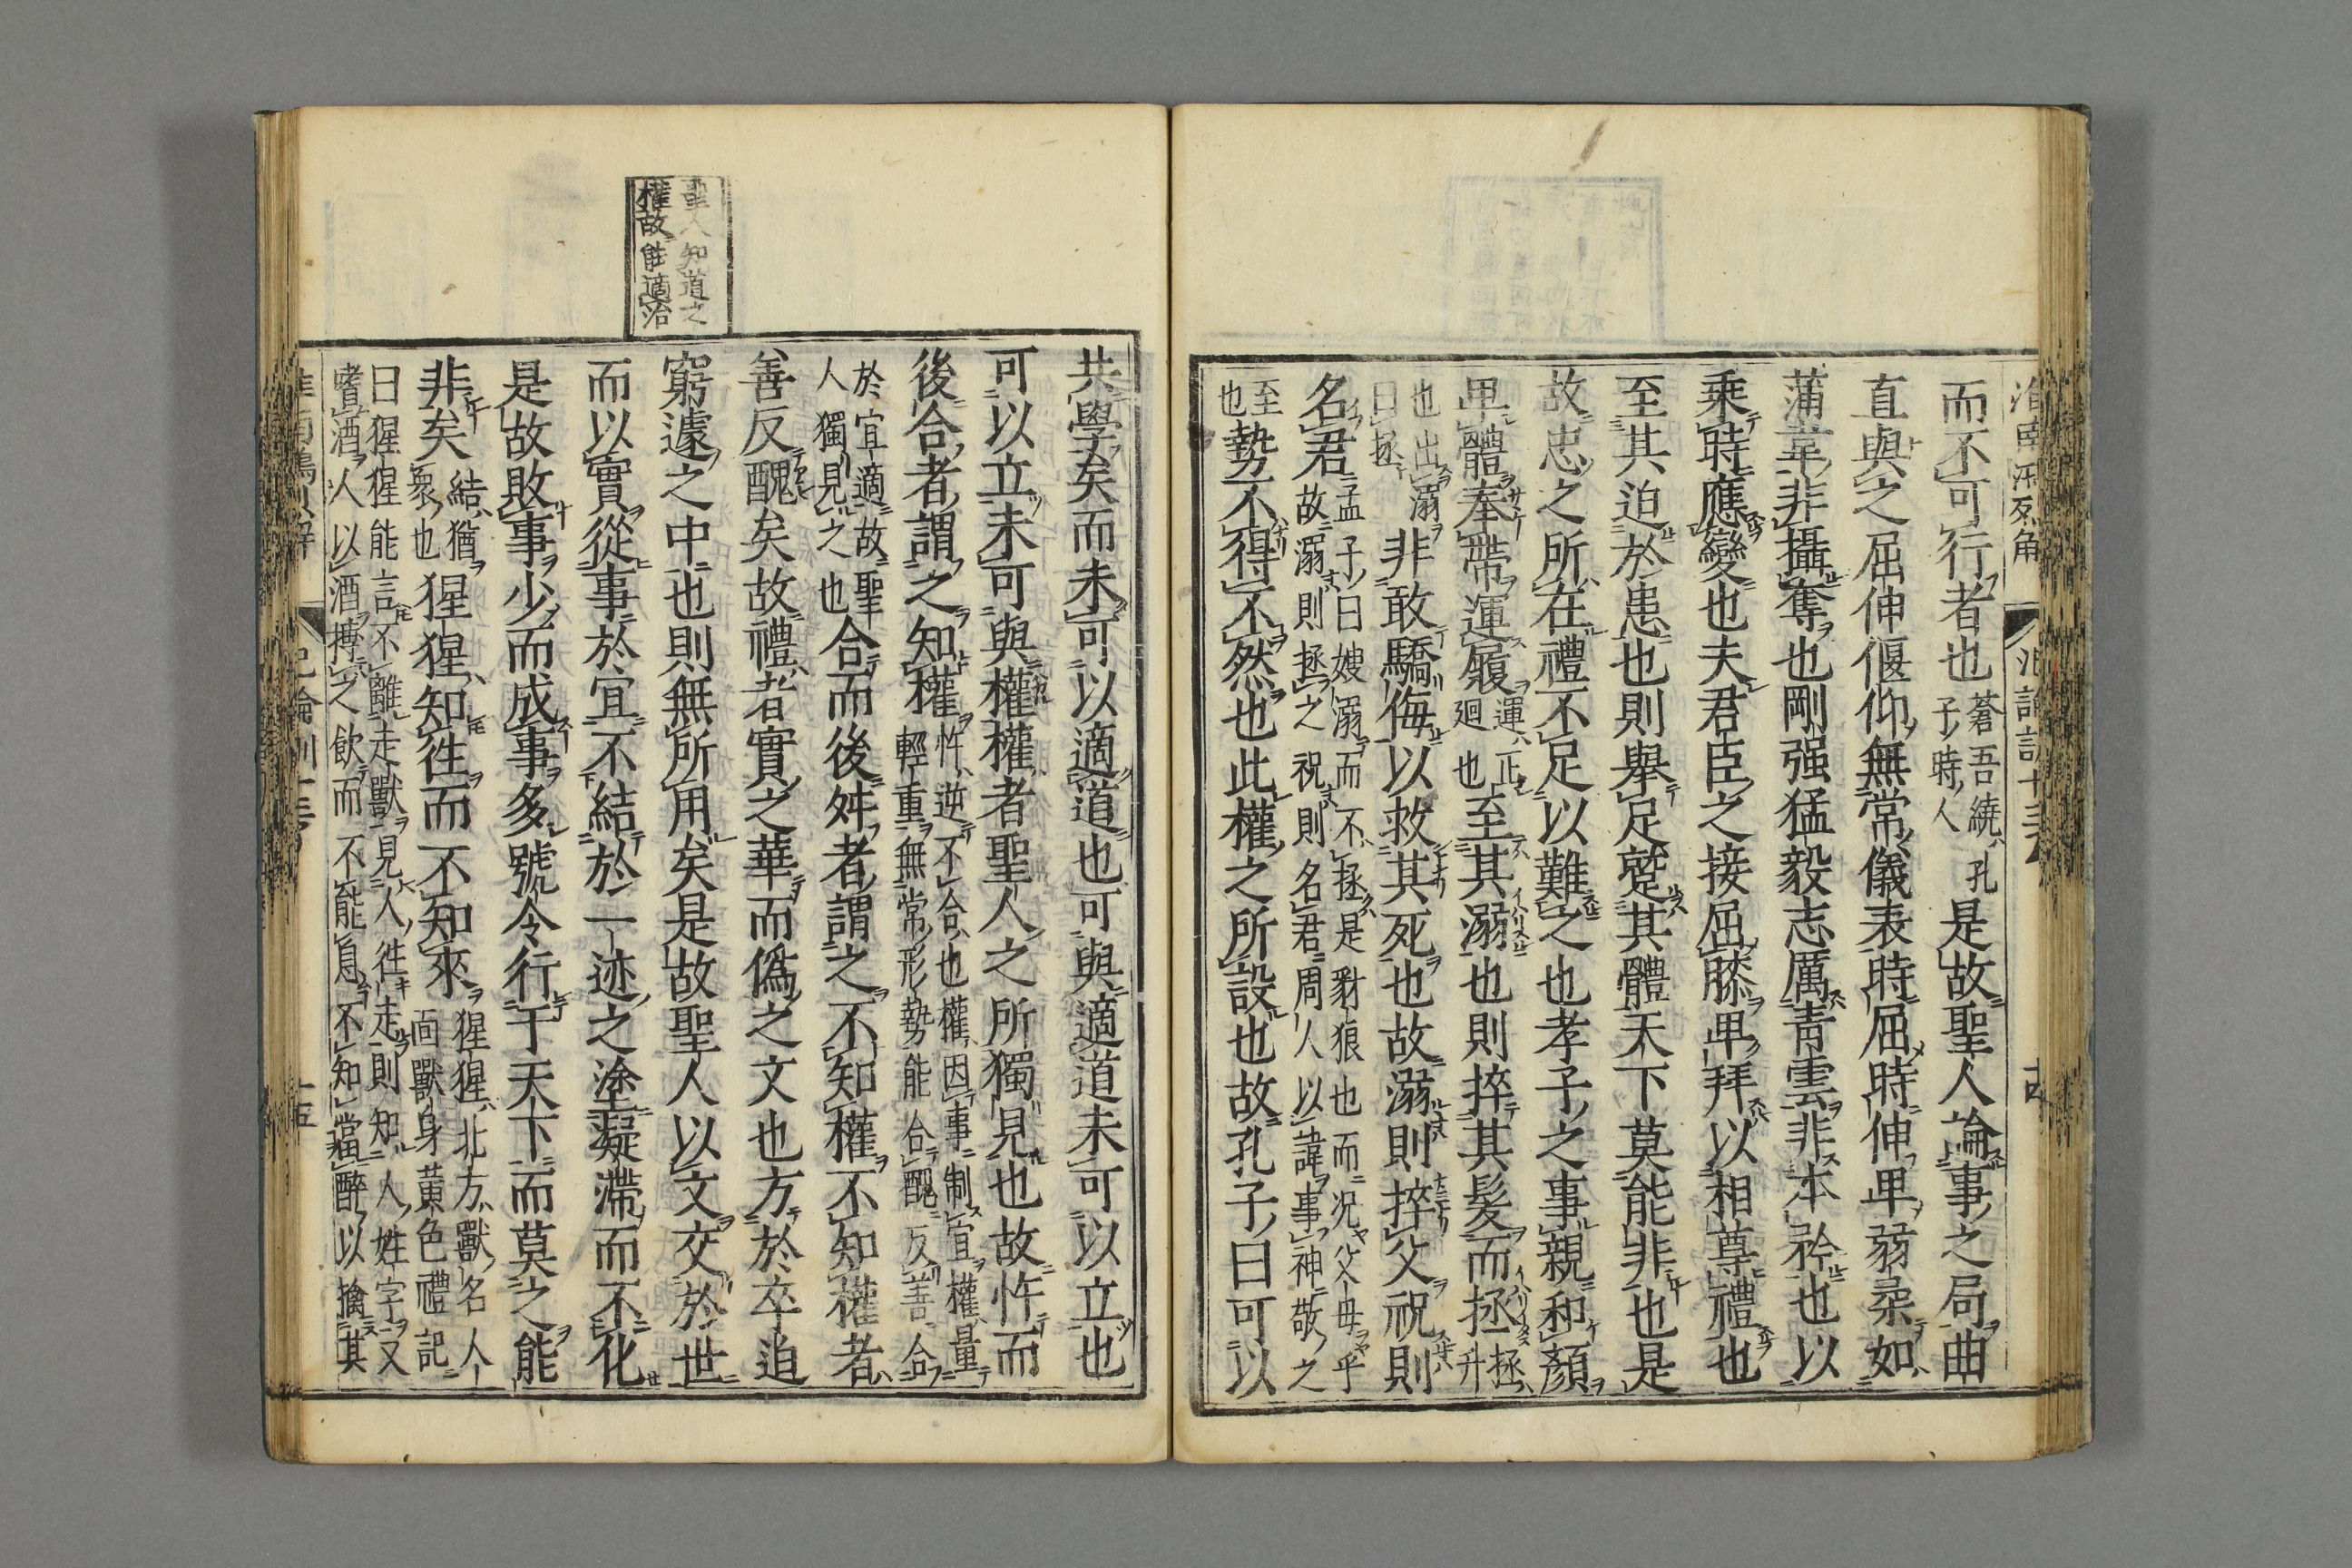 而不可行者也蒼吾繞孔子時人是故聖人論事之局曲
直與之屈伸偃仰無常儀表時屈時伸卑弱柔如
蒲葦非攝奪也剛强猛毅志厲青雲非本矜也以
乘時應變也夫君臣之接屈膝卑拜以相尊禮也
至其迫於患也則舉足蹵其體天下莫能非也是
故忠之所在禮不足以難之也孝子之事親和顏
卑體奉帶運履運正廻也至其溺也則捽其髮而拯拯升
也出溺曰拯非敢驕侮以救其死也故溺則捽父祝則
名君孟子曰嫂溺而不拯是豺狼也而况父母乎故溺則拯之祝則名君周人以諱事神敬之
至也勢不得不然也此權之所設也故孔子曰可以
聖人知道之
權故能適治
共學矣而未可以適道也可與適道未可以立也
可以立未可與權權者聖人之所獨見也故忤而
後合者謂之知權忤逆不合也權因事制宜權量輕重無常形勢能合醜反善合
於宜適故聖人獨見之也合而後舛者謂之不知權不知權者
善反醜矣故禮者實之華而僞之文也方於卒迫
窮遽之中也則無所用矣是故聖人以文交於世
而以實從事於宜不結於一迹之塗凝滯而不化
是故敗事少而成事多號令行于天下而莫之能
非矣結猶聚也猩猩知往而不知來猩猩北方獸名人面獸身黄色禮記
曰猩猩能言不離走獸見人往走則知人姓字又嗜酒人以酒摶之飲而不能息不知當醉以擒其